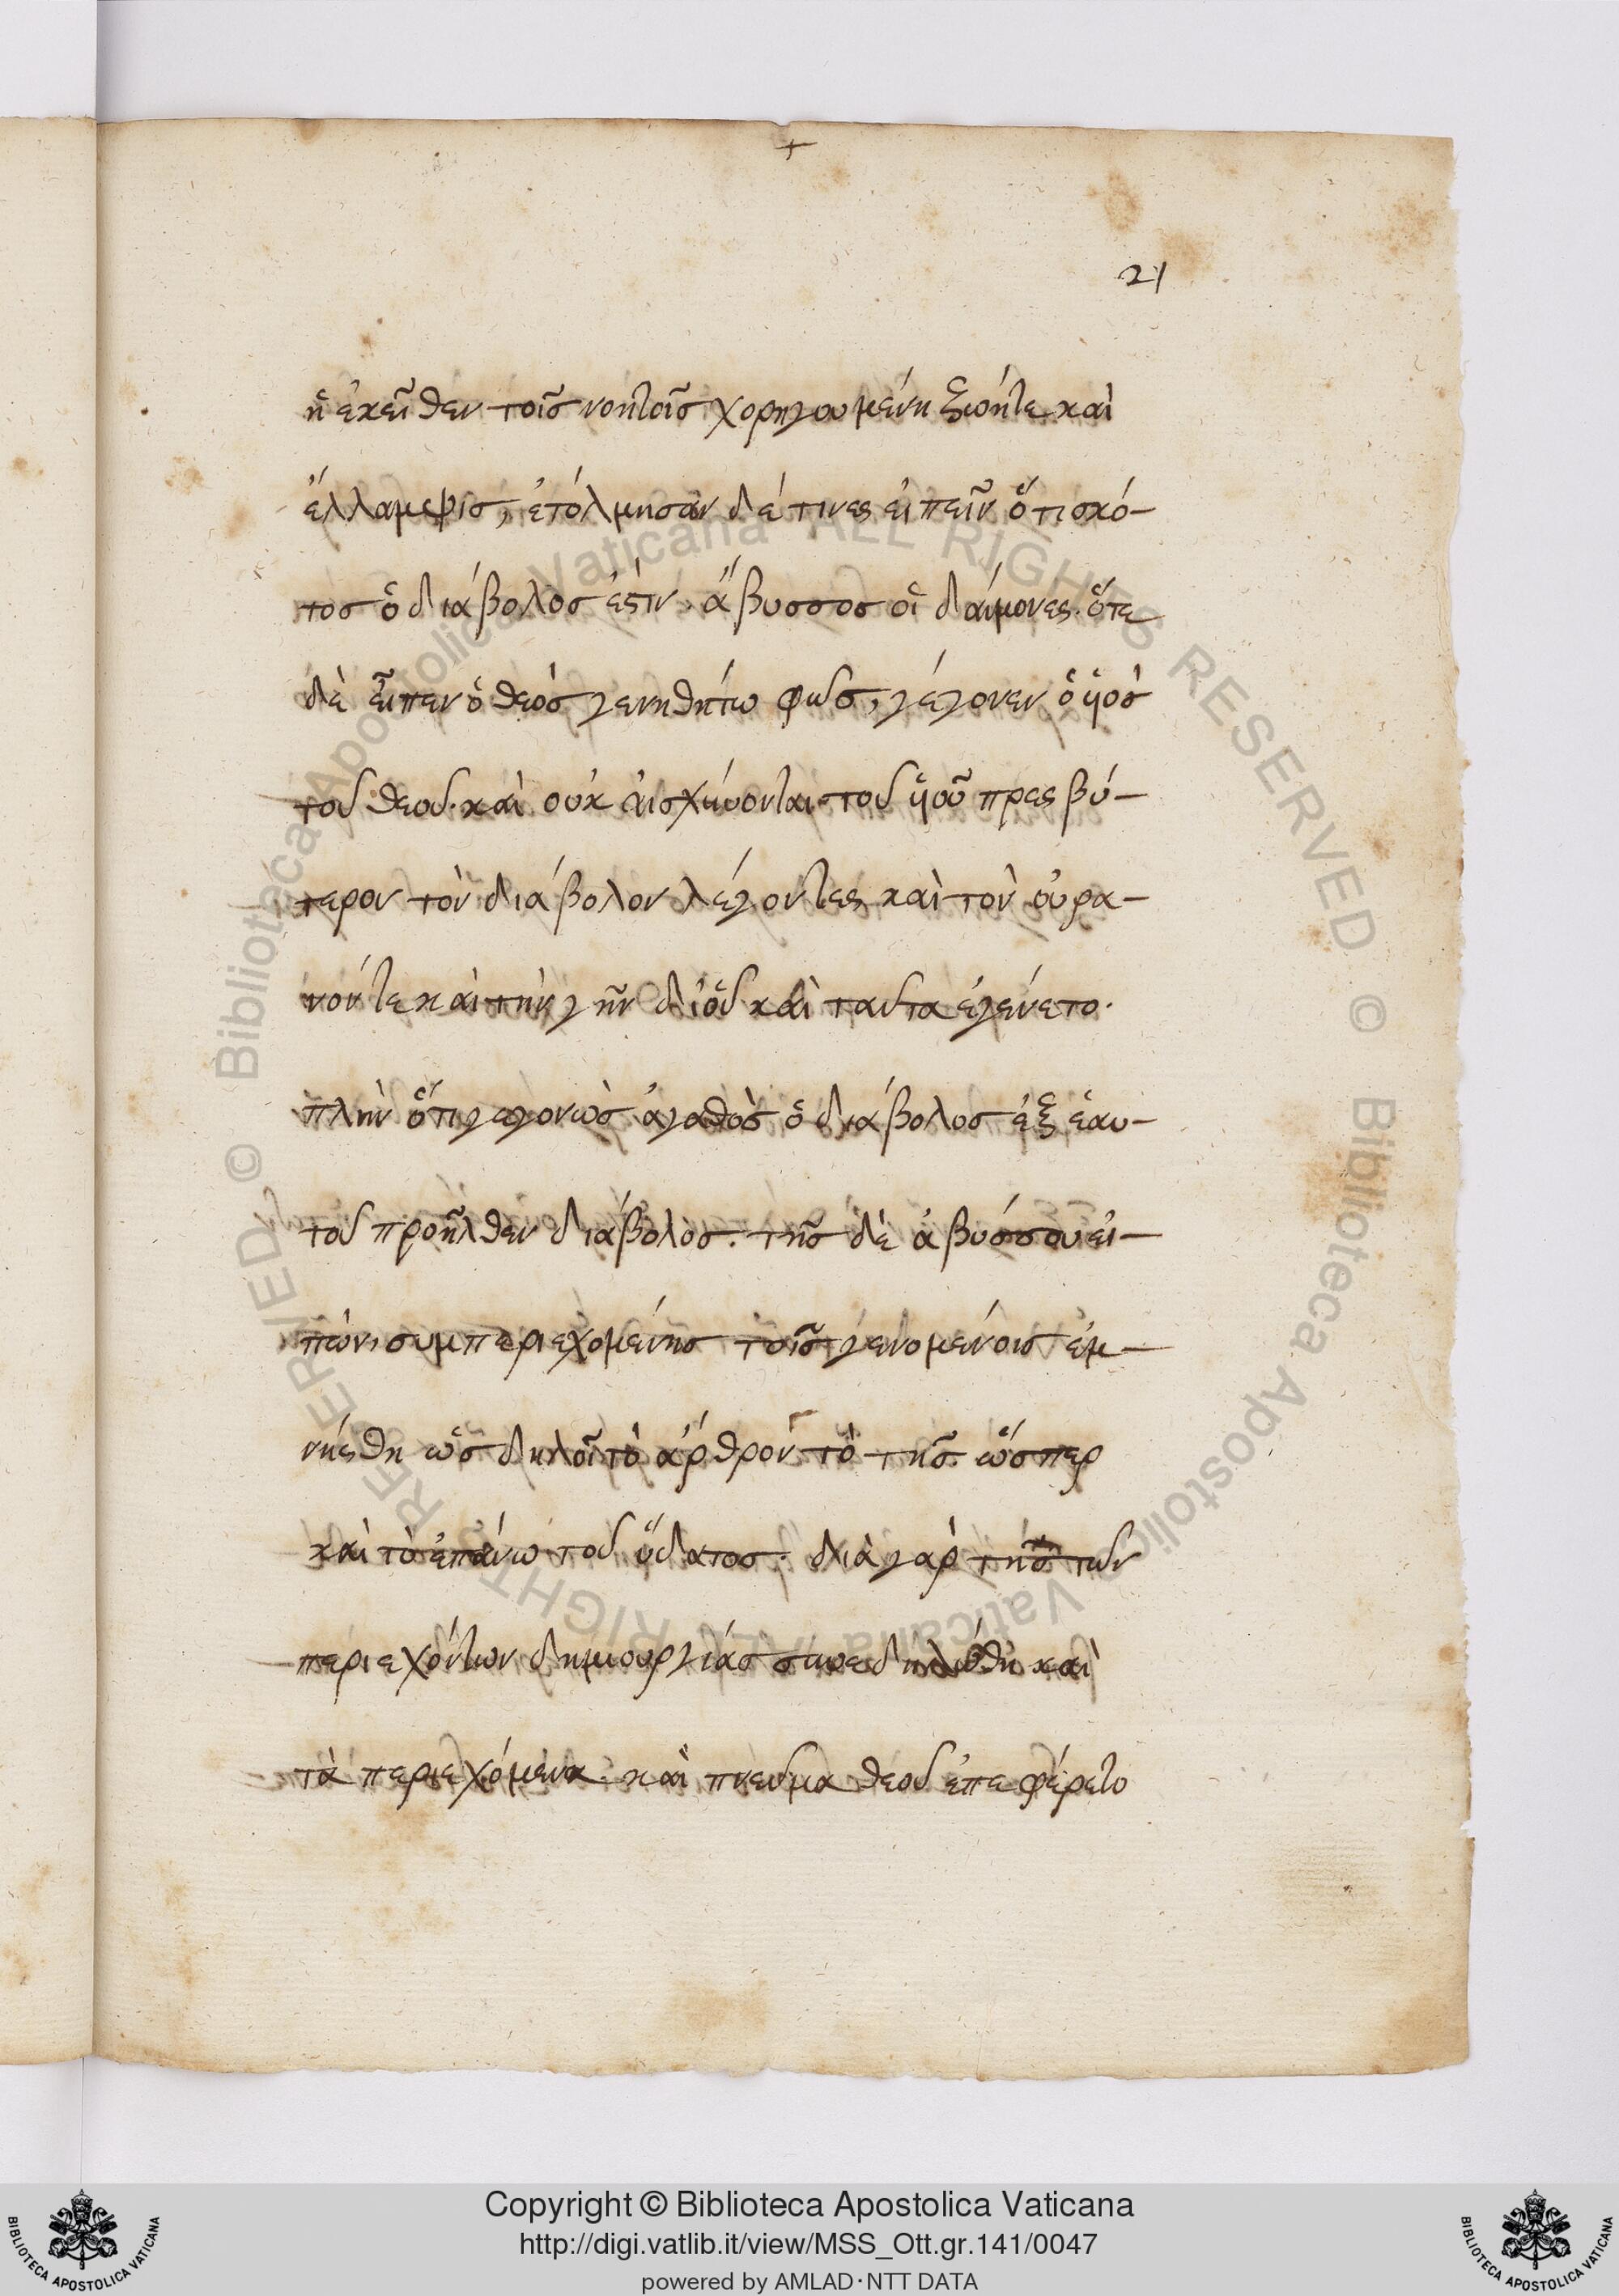 +
21
ἡ ἐκεῖθεν τοῖς νοητοῖς χορηγουμένη ζωήτε καὶ
ἔλλαμψις, ἐτόλμησαν δέ τινες εἰπεῖν ὅτι σκό-
τος ὁ διάβολος ἐστιν, ἄβυσσος οἱ δαίμονες. ὅτε
δὲ εἶπεν ὁ θεὸς γενηθήτω φῶς, γέγονεν ὁ ὑιὸς
τοῦ θεοῦ. καὶ οὐκ αἰσχύνονται τοῦ ὑιοῦ πρεσβύ-
τερον τὸν διάβολον λέγοντες καὶ τὸν οὐρα-
νόν τε καὶ τὴν γῆν δι' οὗ καὶ ταῦτα ἐγένετο.
πλὴν ὅτι γεγονὼς ἀγαθὸς ὁ διάβολος ἐξ ἑαυ-
τοῦ προῆλθεν διάβολος. τῆς δὲ ἀβύσσου εἰ-
πών, συμπεριεχομένης τοῖς γενομένοις ἐμ-
νήσθη ὡς δηλοῖ τὸ ἄρθρον τὸ τῆς. ὥσπερ
καὶ τὸ ἐπάνω τοῦ ὕδατος. διὰ γὰρ τῆς τῶν
περιεχόντων δημιουργίας συνεδηλώθη καὶ
τὰ περιεχόμενα. καὶ πνεῦμα θεοῦ ἐπεφέρετο
Copyright © Biblioteca Apostolica Vaticana
http://digi.vatlib.it/view/MSS_Ott.gr.141/0047
powered by AMLAD·NTT DATA
BIBLIOTECA APOSTOLICA VATICANA
BIBLIOTECA APOSTOLICA VATICANA